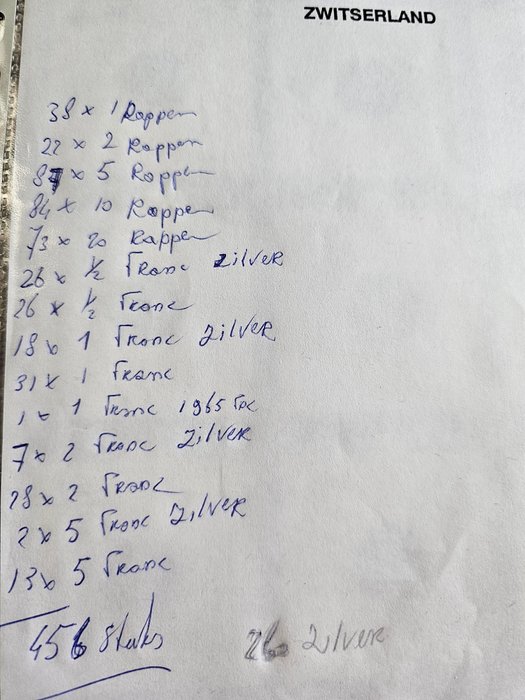 ZWITSERLAND
38 x 1 Rappen
22 x 2 Rappen
87 x 5 Rappen
84 x 10 Rappen
73 x 20 Rappen
26 x ½ Franc zilver
26 x ½ Franc
18 x 1 Franc zilver
31 x 1 Franc
1 x 1 Franc 1965 FDC
7 x 2 Franc zilver
28 x 2 Franc
2 x 5 Franc zilver
13 x 5 Franc
456 Stuks
zilver